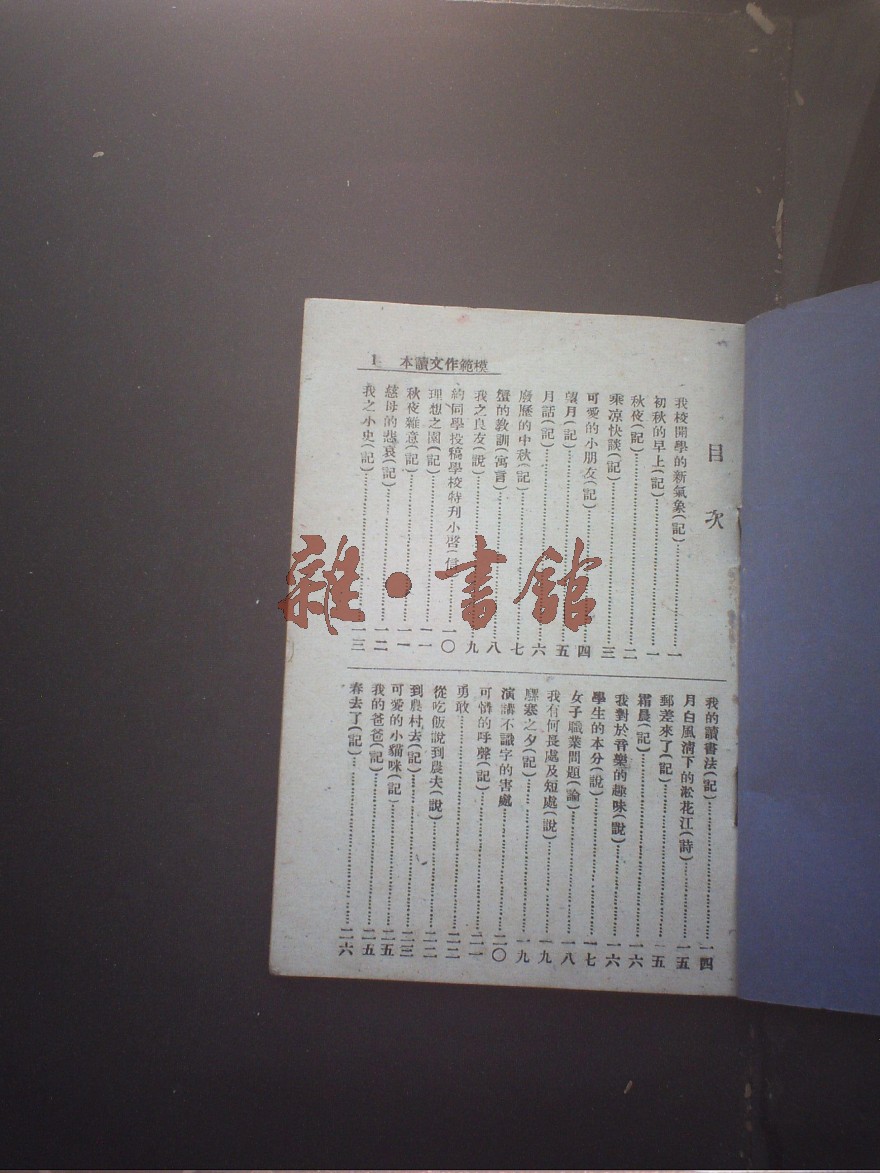 模範作文讀本 1
目次
我校開學的新氣象(記)…………一
初秋的早上(記)…………一
秋夜(記)…………二
乘涼快談(記)…………三
可愛的小朋友(記)…………四
望月(記)…………五
月話(記)…………六
廢歷的中秋(記)…………七
蟹的教訓(寓言)…………八
我之良友(說)…………九
約同學投稿學校特刋小啓(信…………一〇
理想之園(記)…………一一
秋夜雜意(記)…………一一
慈母的悲哀(記)…………一二
我之小史(記)…………一三
我的讀書法(記)…………一四
月白風淸下的淞花江(詩)…………一五
郵差來了(記)…………一五
霜晨(記)…………一六
我對於音樂的趣味(說)…………一六
學生的本分(說)…………一七
女子職業問題(論)…………一八
我有何長處及短處(說)…………一九
寒之夕(記)…………一九
演講不識字的害處…………二〇
可憐的呼聲(記)…………二一
勇敢…………二二
從吃飯說到農夫(說)…………二二
到農村去(記)…………二三
可愛的小貓咪(記)…………二五
我的爸爸(記)…………二五
春去了(記)…………二六
雜·書館